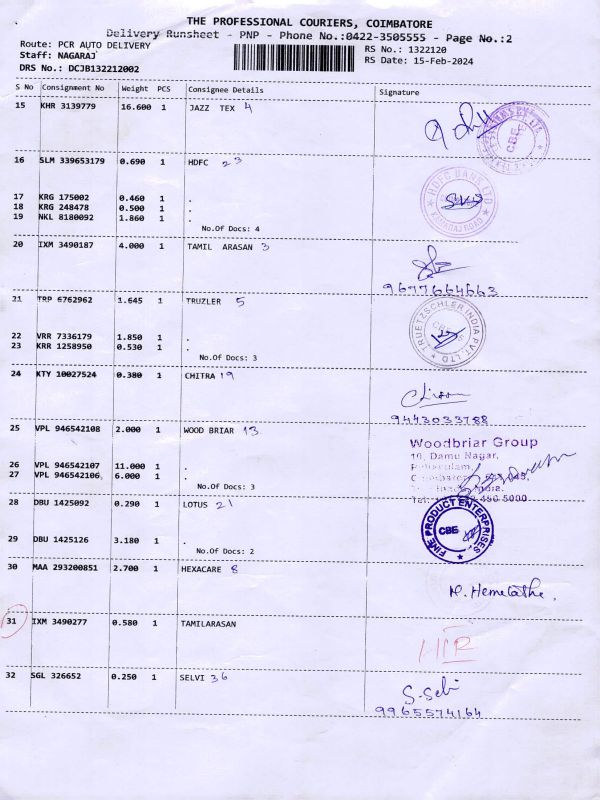 THE PROFESSIONAL COURIERS, COIMBATORE
Delivery Runsheet - PNP - Phone No.:0422-3505555 - Page No.:2
Route: PCR AUTO DELIVERY RS No.: 1322120
Staff: NAGARAJ RS Date: 15-Feb-2024
DRS No.: DCJB132212002
S No Consignment No Weight PCS Consignee Details Signature
15 KHR 3139779 16.600 1 JAZZ TEX 4
CBE
16 SLM 339653179 0.690 1 HDFC 23
HDFC BANK LTD
17 KRG 175002 0.460 1 .
18 KRG 248478 0.500 1 .
19 NKL 8180092 1.860 1 .
No.Of Docs: 4
20 IXM 3490187 4.000 1 TAMIL ARASAN 3
9677664663
21 TRP 6762962 1.645 1 TRUZLER 5
TRUETZSCHLER INDIA PVT. LTD
22 VRR 7336179 1.850 1 .
23 KRR 1258950 0.530 1 .
No.Of Docs: 3
24 KTY 10027524 0.380 1 CHITRA 19
9443033788
25 VPL 946542108 2.000 1 WOOD BRIAR 13
Woodbriar Group
10, Damu Nagar,
26 VPL 946542107 11.000 1 .
27 VPL 946542106 6.000 1 .
No.Of Docs: 3
28 DBU 1425092 0.290 1 LOTUS 21
FINE PRODUCT ENTERPRISES
CBE
29 DBU 1425126 3.180 1 .
No.Of Docs: 2
30 MAA 293200851 2.700 1 HEXACARE 8
M. Hemelathe.
31 IXM 3490277 0.580 1 TAMILARASAN
32 SGL 326652 0.250 1 SELVI 36
S. Selvi
9965574164